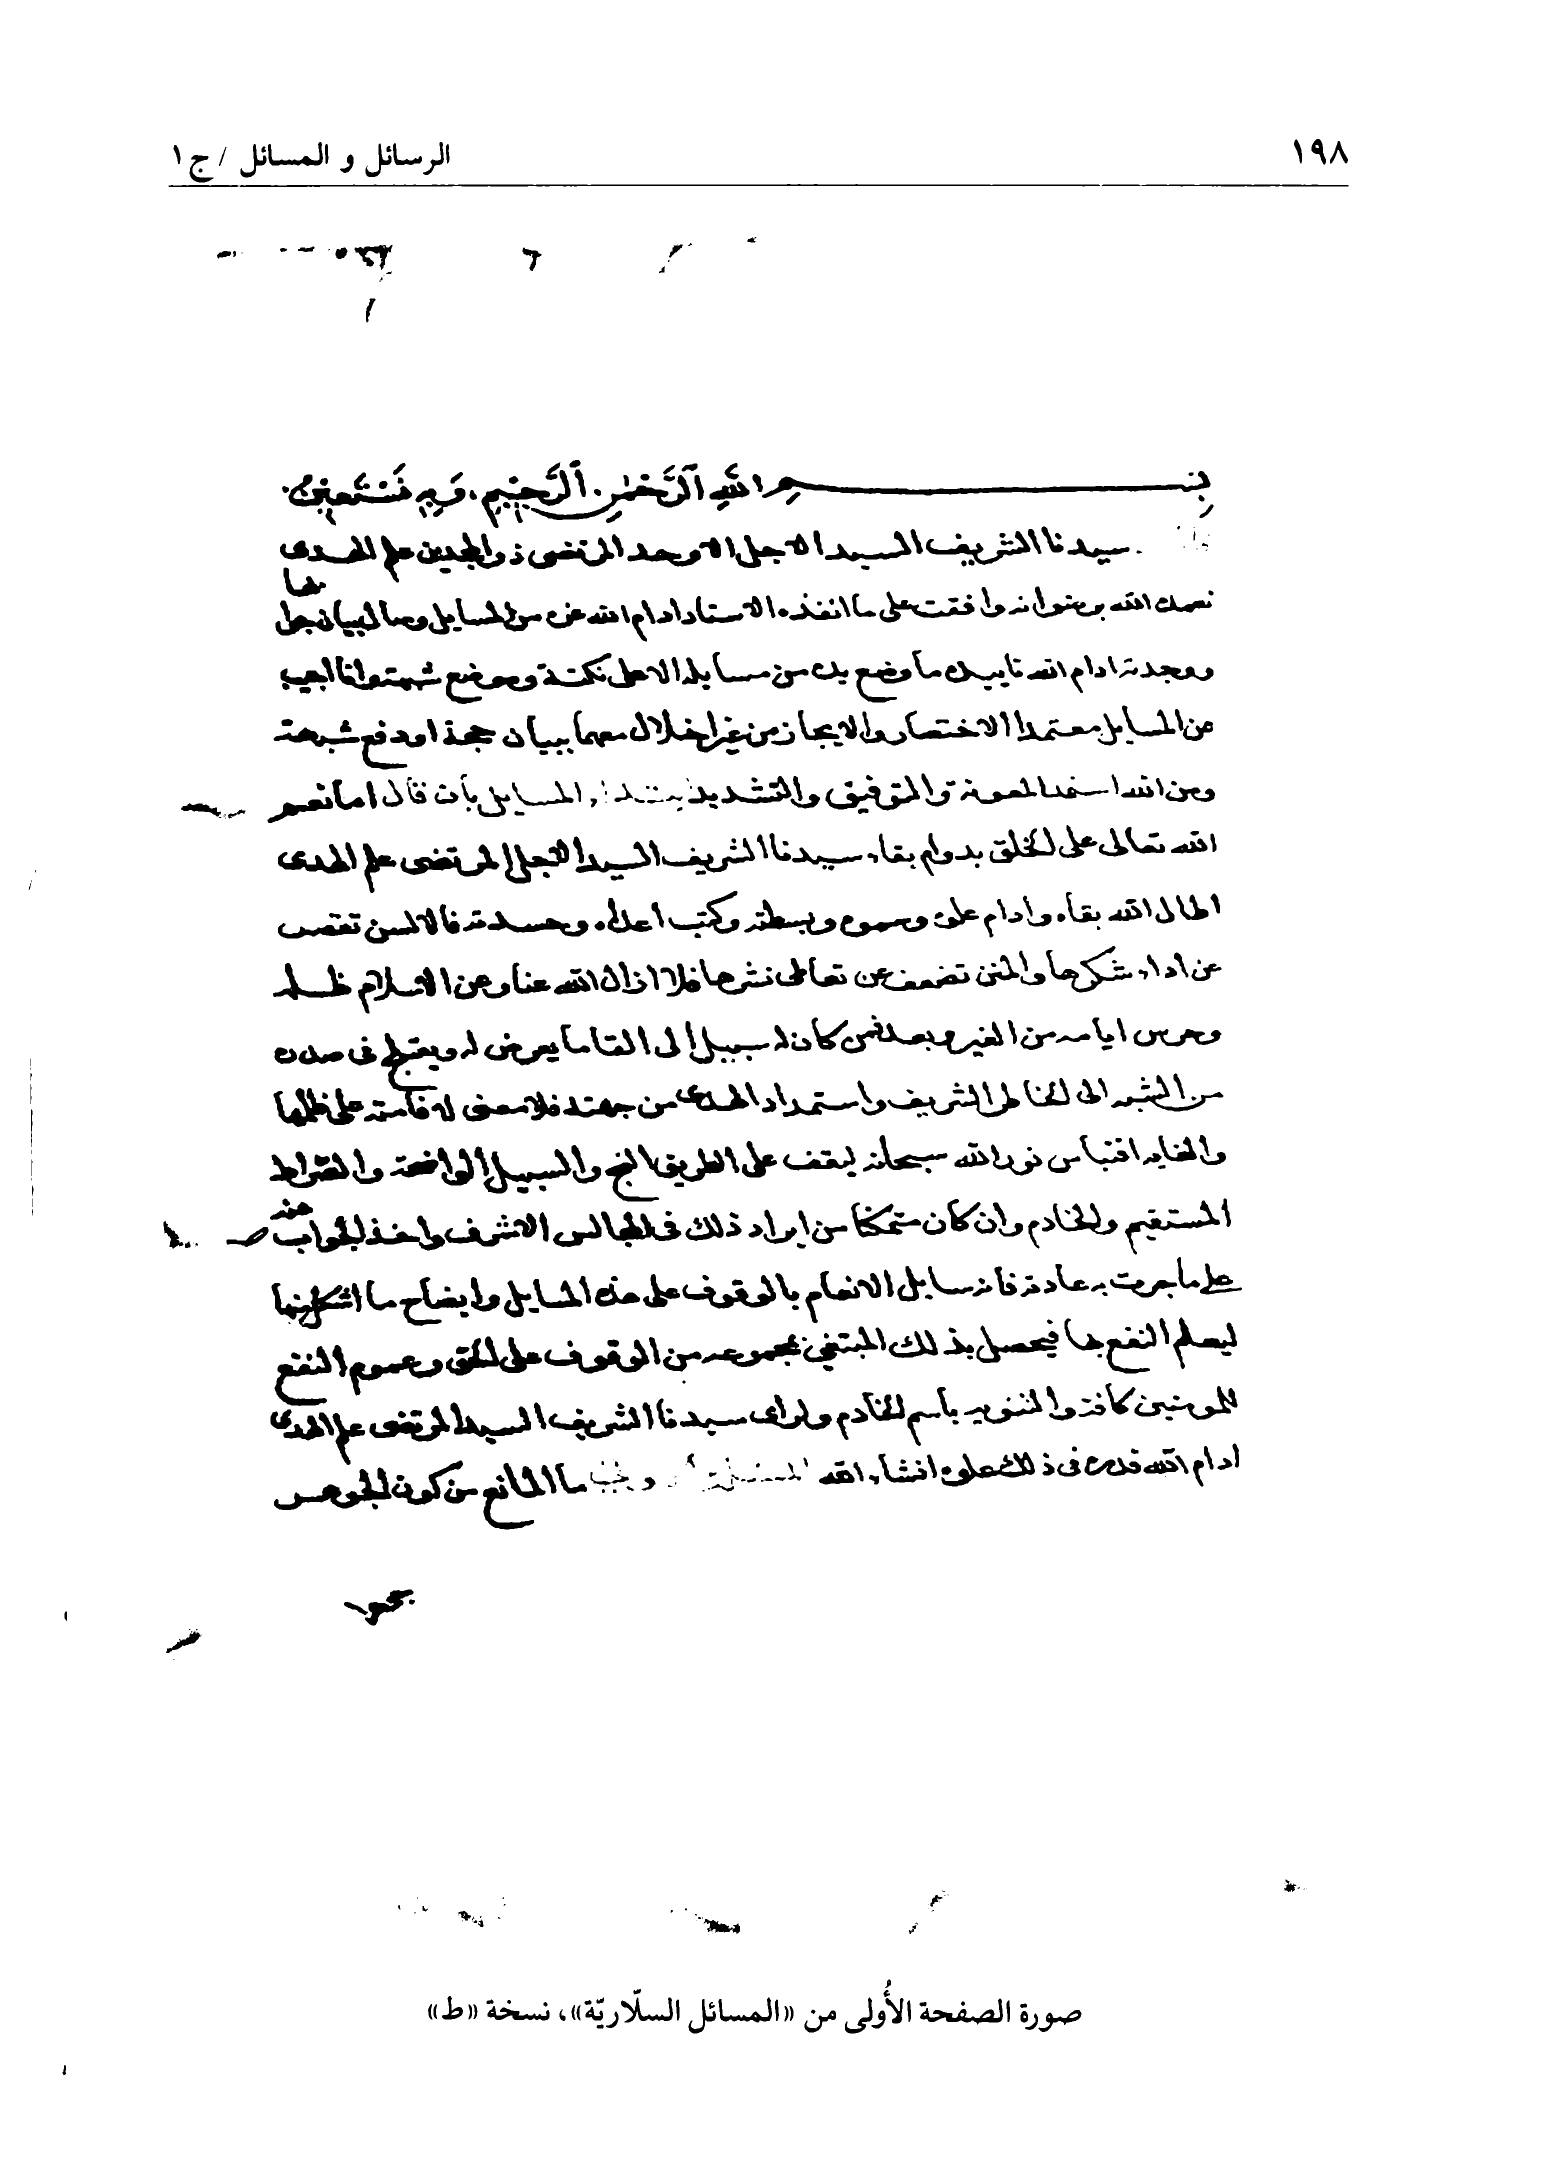 ١٩٨
الرسائل و المسائل / ج١
بسم الله الرحمن الرحيم، وبه نستعين.
سيدنا الشريف السيد الاجل الاوحد المرتضى ذو المجدين علم الهدى
الله برضوانه وافقت على ما انفذه الاستاد ادام الله عزه من المسايل وسال بيان جوابها
ووجدته ادام الله تاييده ما وضع يده من مسايله الا على نكتة وموضع شبهة وانا اجيب
عن المسايل معتمدا الاختصار والايجاز من غير اخلال معهما ببيان حجة او دفع شبهة
ومن الله استمد المعونة والتوفيق والتسديد المسايل بأن قال اما نعم
الله تعالى على الخلق بدوام بقاء سيدنا الشريف السيد الاجل المرتضى علم الهدى
اطال الله بقاه وادام علوه وسموه وبسطته وكبت اعداه وحسدته فالالسن تقصر
عن اداء شكرها والمنن تضعف عن تعاطى نشرها فلا ازال الله عنا وعن الاسلام ظله
وحرس ايامه من الغير وبعد فمن كان له سبيل إلى القا ما يعرض له ويعتلج فى صدره
من الشبه الى الخاطر الشريف واستمداد الهدى من جهته فلا معنى لاقامته على ظلمها
والغايه اقتباس نور الله سبحانه ليقف على الطريق النهج والسبيل الواضحة والصراط
المستقيم والخادم وان كان متمكنا من ايراد ذلك فى المجالس الاشرف واخذ الجواب عنه
على ما جرت به عادته فانه سايل الانعام بالوقوف على هذه المسايل وايضاح ما اشكل منها
ليعلم النفع بها فيحصل بذلك المبتغى بمجموعه من الوقوف على الحق وعموم النفع
للمومنين كافة والتنويه باسم الخادم ولراى سيدنا الشريف السيد المرتضى علم الهدى
ادام الله قدرته فى ذلك علوه انشاء الله ما المانع من كون الجوهر
صورة الصفحة الأُولى من «المسائل السلّاريّة»، نسخة «ط»